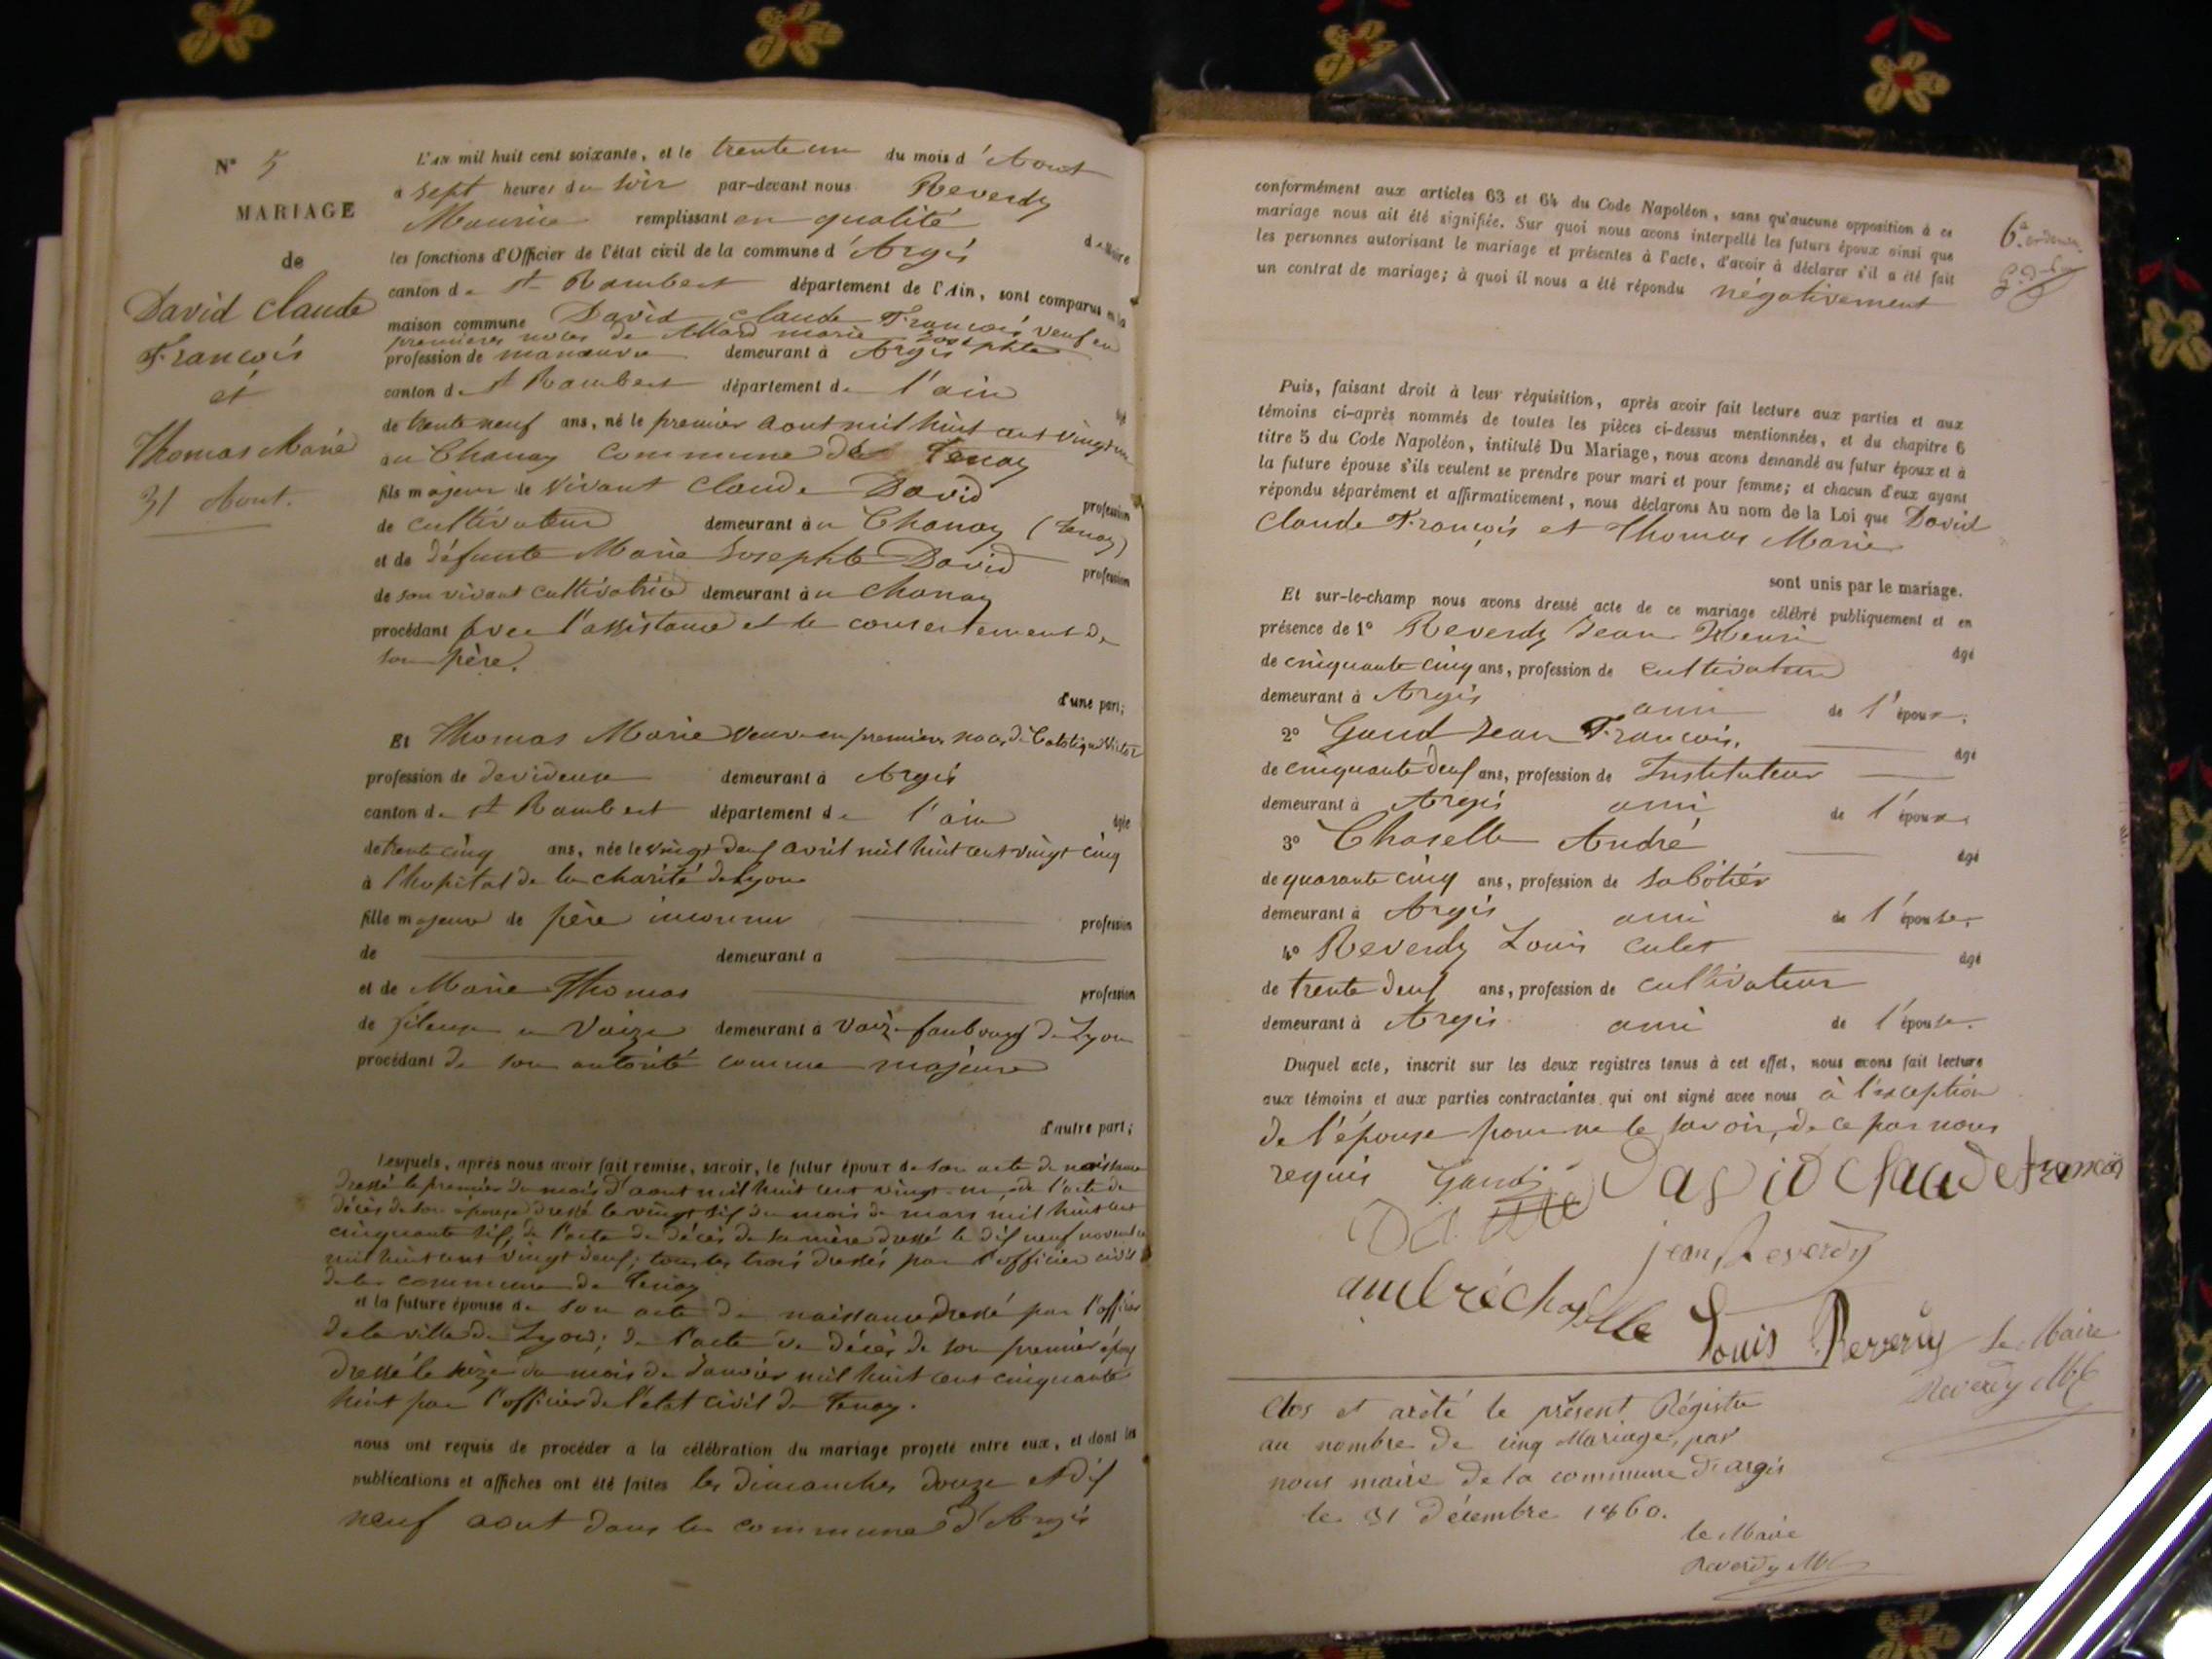 N° 5
MARIAGE
de
David Claude
François
et
Thomas Marie
31 Aout.
L'AN mil huit cent soixante, et le trente un du mois d'Aout
a sept heures du soir par-devant nous Reverdy
Maurice remplissant en qualité de Maire
les fonctions d'Officier de l'état civil de la commune d'Argis
canton de St Rambert département de l'Ain, sont comparus en la
maison commune David Claude François veuf en
premieres noces de Allard marie Josephte
profession de manœuvre demeurant à Argis
canton de St Rambert département de l'ain âgé
de trente neuf ans, né le premier aout mil huit cent vingt un
au Chanay commune de Tenay
fils majeur de vivant Claude David profession
de cultivateur demeurant au Chanay (Tenay)
et de défunte Marie Josephte David profession
de son vivant cultivatrice demeurant au Chanay
procédant avec l'assistance et le consentement de
son père.
d'une part;
Et Thomas Marie veuve en premieres noces de Victor
profession de devideuse demeurant à Argis
canton de St Rambert département de l'ain âgée
de trente cinq ans, née le vingt deuf avril mil huit cent vingt cinq
à l'hopital de la charité de Lyon
fille majeure de père inconnu profession
de demeurant a
et de Marie Thomas profession
de fileuse a Vaize demeurant à Vaize faubourg de Lyon
procédant de son autorité comme majeure
d'autre part;
Lesquels, après nous avoir fait remise, savoir, le futur époux de son acte de naissance
dressé le premier du mois d'aout mil huit cent vingt-un, de l'acte de
décès de son épouse dressé le vingt sif du mois de mars mil huit cent
cinquante sif, de l'acte de décès de sa mère dressé le dif neuf novembre
mil huit cent vingt deuf; tous les trois dressés par l'officier civil
de la commune de Tenay
et la future épouse de son acte de naissance dressé par l'officier
de la ville de Lyon; de l'acte de décès de son premier époux
dressé le seize du mois de Janvier mil huit cent cinquante
huit par l'officier de l'état civil de Tenay.
nous ont requis de procéder à la célébration du mariage projeté entre eux, et dont les
publications et affiches ont été faites les dimanches douze et dif
neuf aout dans la commune d'Argis
conformément aux articles 63 et 64 du Code Napoléon, sans qu'aucune opposition à ce
mariage nous ait été signifiée. Sur quoi nous avons interpellé les futurs époux ainsi que
les personnes autorisant le mariage et présentes à l'acte, d'avoir à déclarer s'il a été fait
un contrat de mariage; à quoi il nous a été répondu négativement
Puis, faisant droit à leur réquisition, après avoir fait lecture aux parties et aux
témoins ci-après nommés de toutes les pièces ci-dessus mentionnées, et du chapitre 6
titre 5 du Code Napoléon, intitulé Du Mariage, nous avons demandé au futur époux et à
la future épouse s'ils veulent se prendre pour mari et pour femme; et chacun d'eux ayant
répondu séparément et affirmativement, nous déclarons Au nom de la Loi que David
Claude François et Thomas Marie
sont unis par le mariage.
Et sur-le-champ nous avons dressé acte de ce mariage célébré publiquement et en
présence de 1° Reverdy Jean Henri âgé
de cinquante cinq ans, profession de cultivateur
demeurant à Argis ami de l'époux;
2° Gand Jean François. âgé
de cinquante deuf ans, profession de Instituteur
demeurant à Argis ami de l'époux,
3° Chaselle André âgé
de quarante cinq ans, profession de sabotier
demeurant à Argis ami de l'épouse,
4° Reverdy Louis culet âgé
de trente deuf ans, profession de cultivateur
demeurant à Argis ami de l'épouse.
Duquel acte, inscrit sur les deux registres tenus à cet effet, nous avons fait lecture
aux témoins et aux parties contractantes qui ont signé avec nous à l'exception
de l'épouse pour ne le savoir, de ce par nous
requis Gand David Claude francois
jean Reverdy
andré Chaselle Louis Reverdy Le Maire
Reverdy
Clos et arêté le présent Régistre
au nombre de cinq Mariage, par
nous maire de la commune d'argis
le 31 Décembre 1860.
le Maire
Reverdy